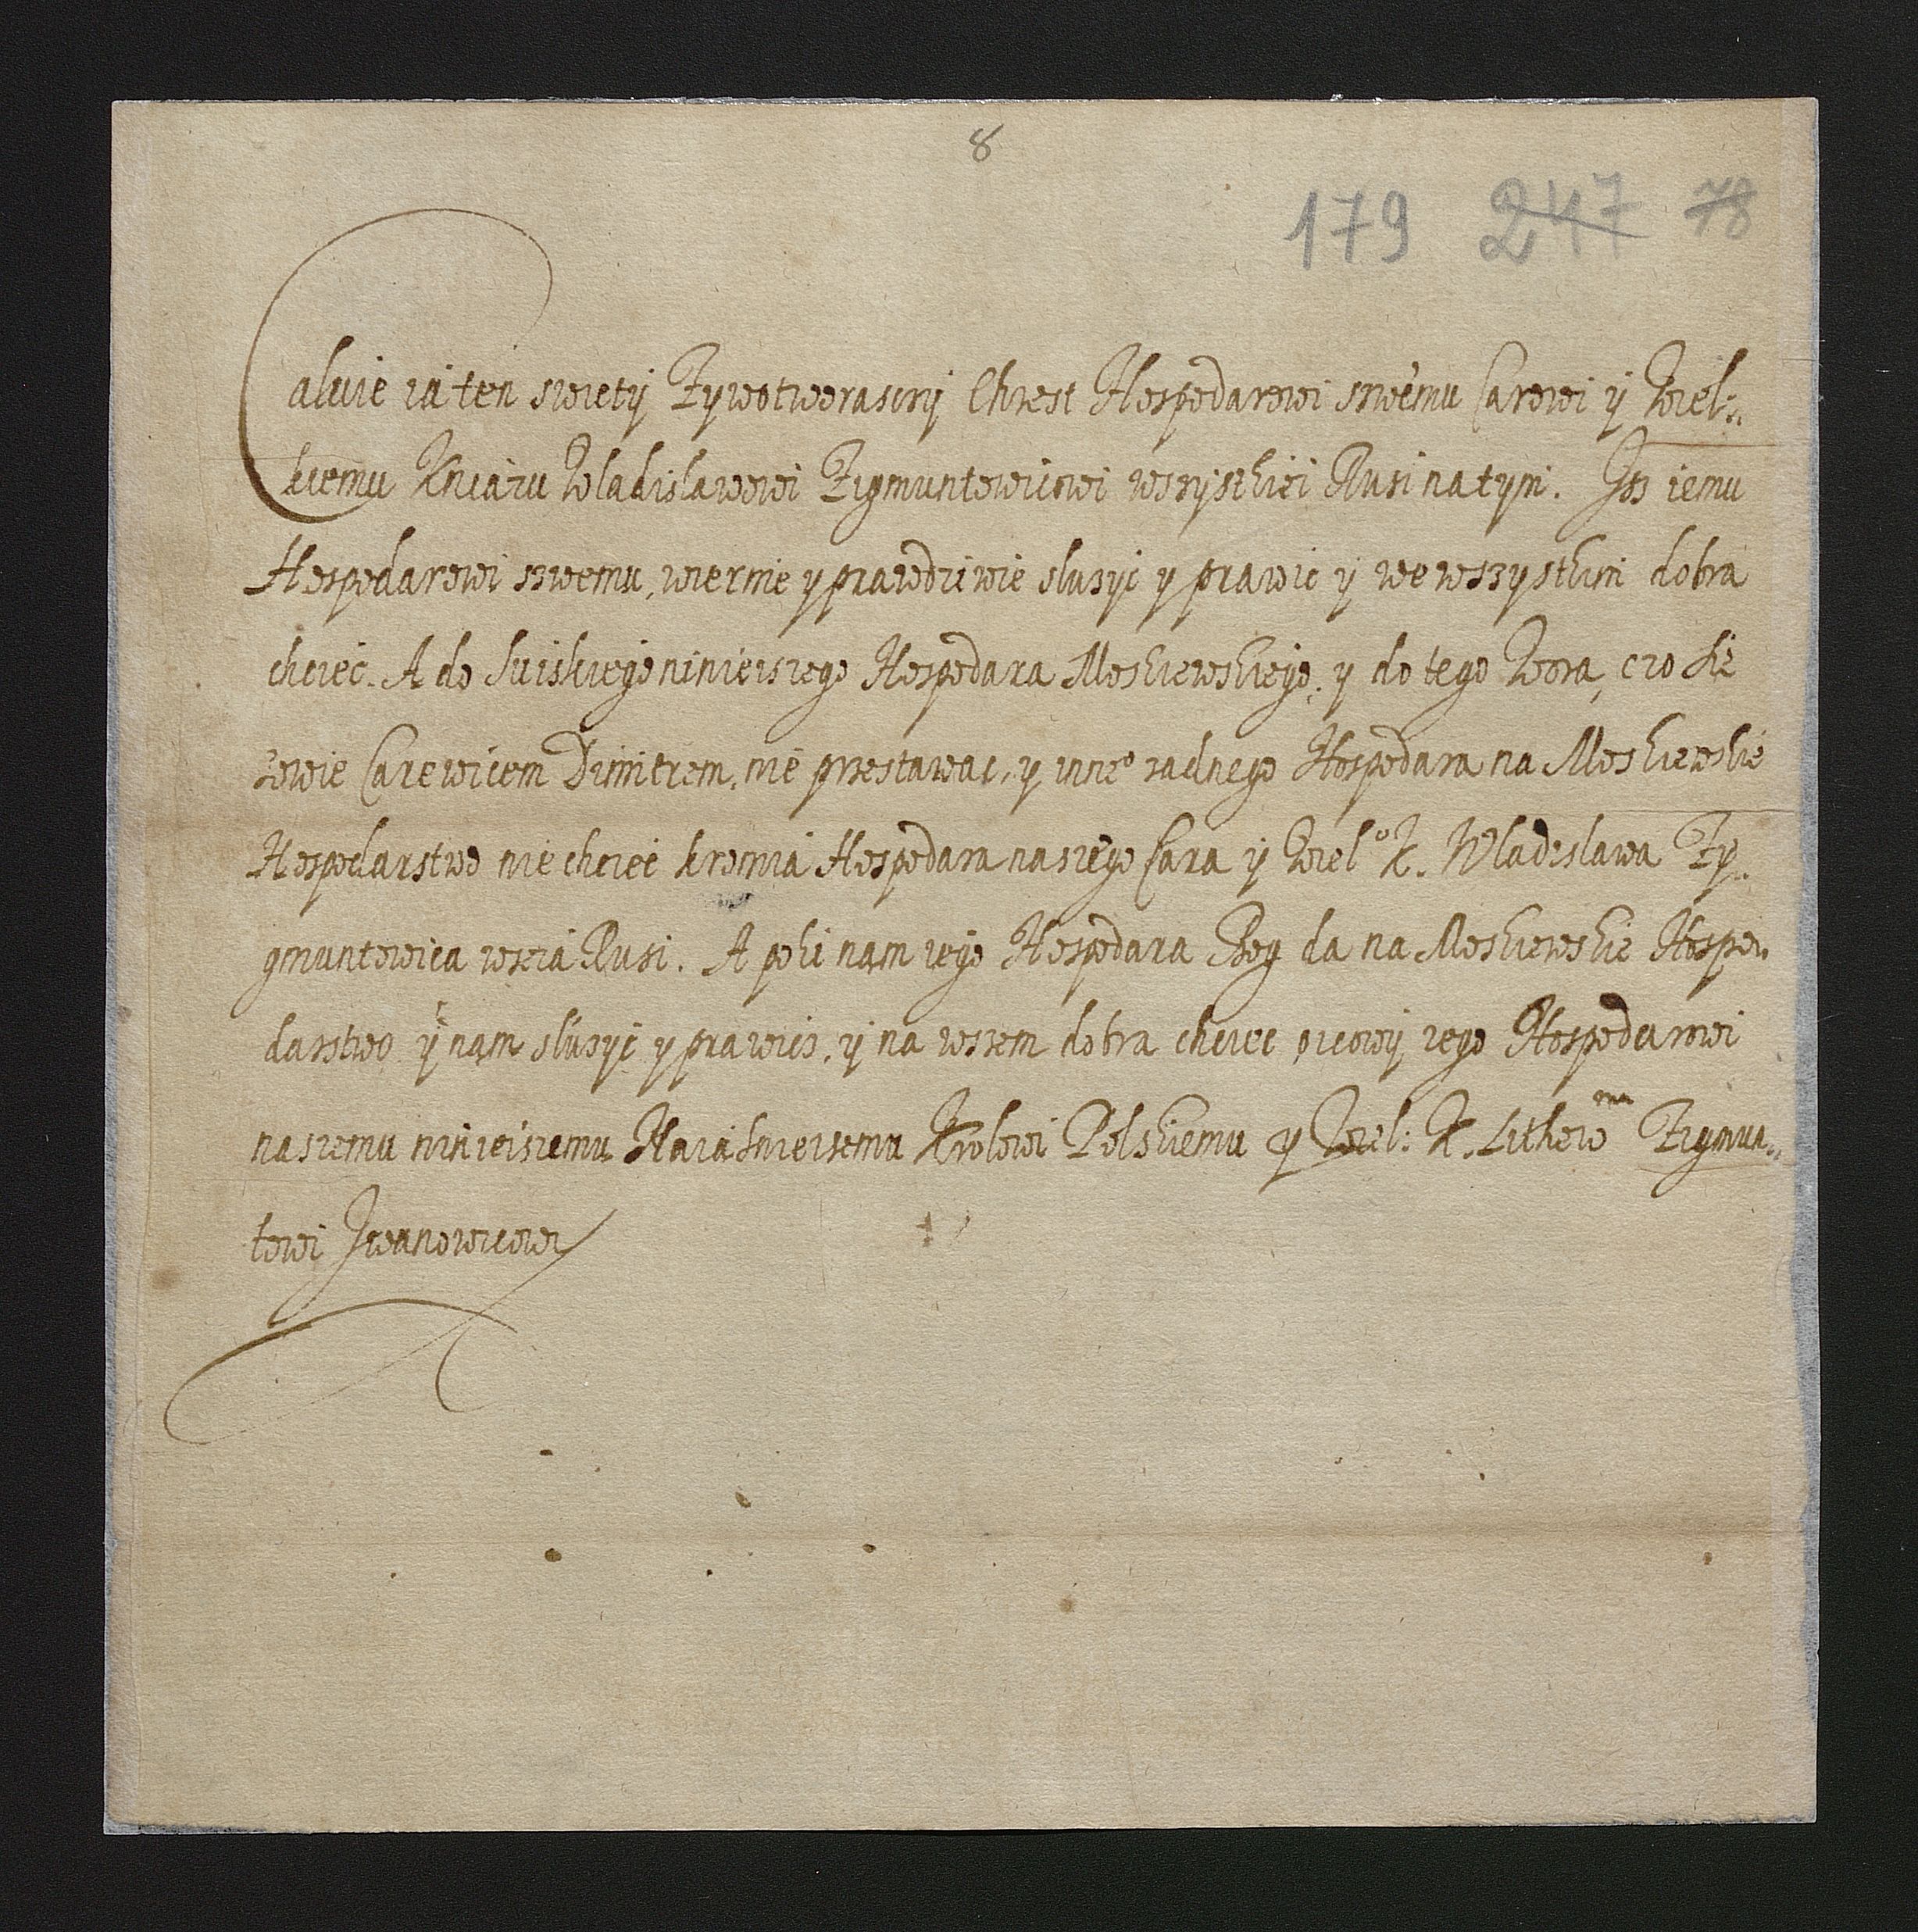 8
179 247 78
Caluie iá ten swietÿ Zywotworasczÿ Chrest Hospodarowi sswemu Carowi ÿ Wiel:
kiemu Kniaziu Wladislawowi Zigmuntowicowi wssystkiei Rusi na tym. Jsz iemu
Hospodarowi sswemu, wiernie y prawdziwie slusyc y prawic ÿ we wsszystkim dobra
chciec. A do Suiskiego ninieiszego Hospodara Moskiewskiego, y do tego Wora, czo sie
zowie Carewicem Dimitrem, nie przestawac, y inneo zadnego Hospodara na Moskiewskie
Hospodarstwo nie chciec kromia Hospodara nasiego Cara ÿ Wielo K. Wladislawa Zy
gmuntowica wszeia Rusi. A poki nam iego Hospodara Bog da na Moskiewskie Hospo
darstwo ÿ nam slusyc y prawic, ÿ na wszem dobra chciec oicowÿ iego Hospodarowi
nasiemu ninieisiemu Naiaśnieisemu Krolowi Polskiemu y Wiel: K. Lithewomu Zigmun
towi Jwanowicowi